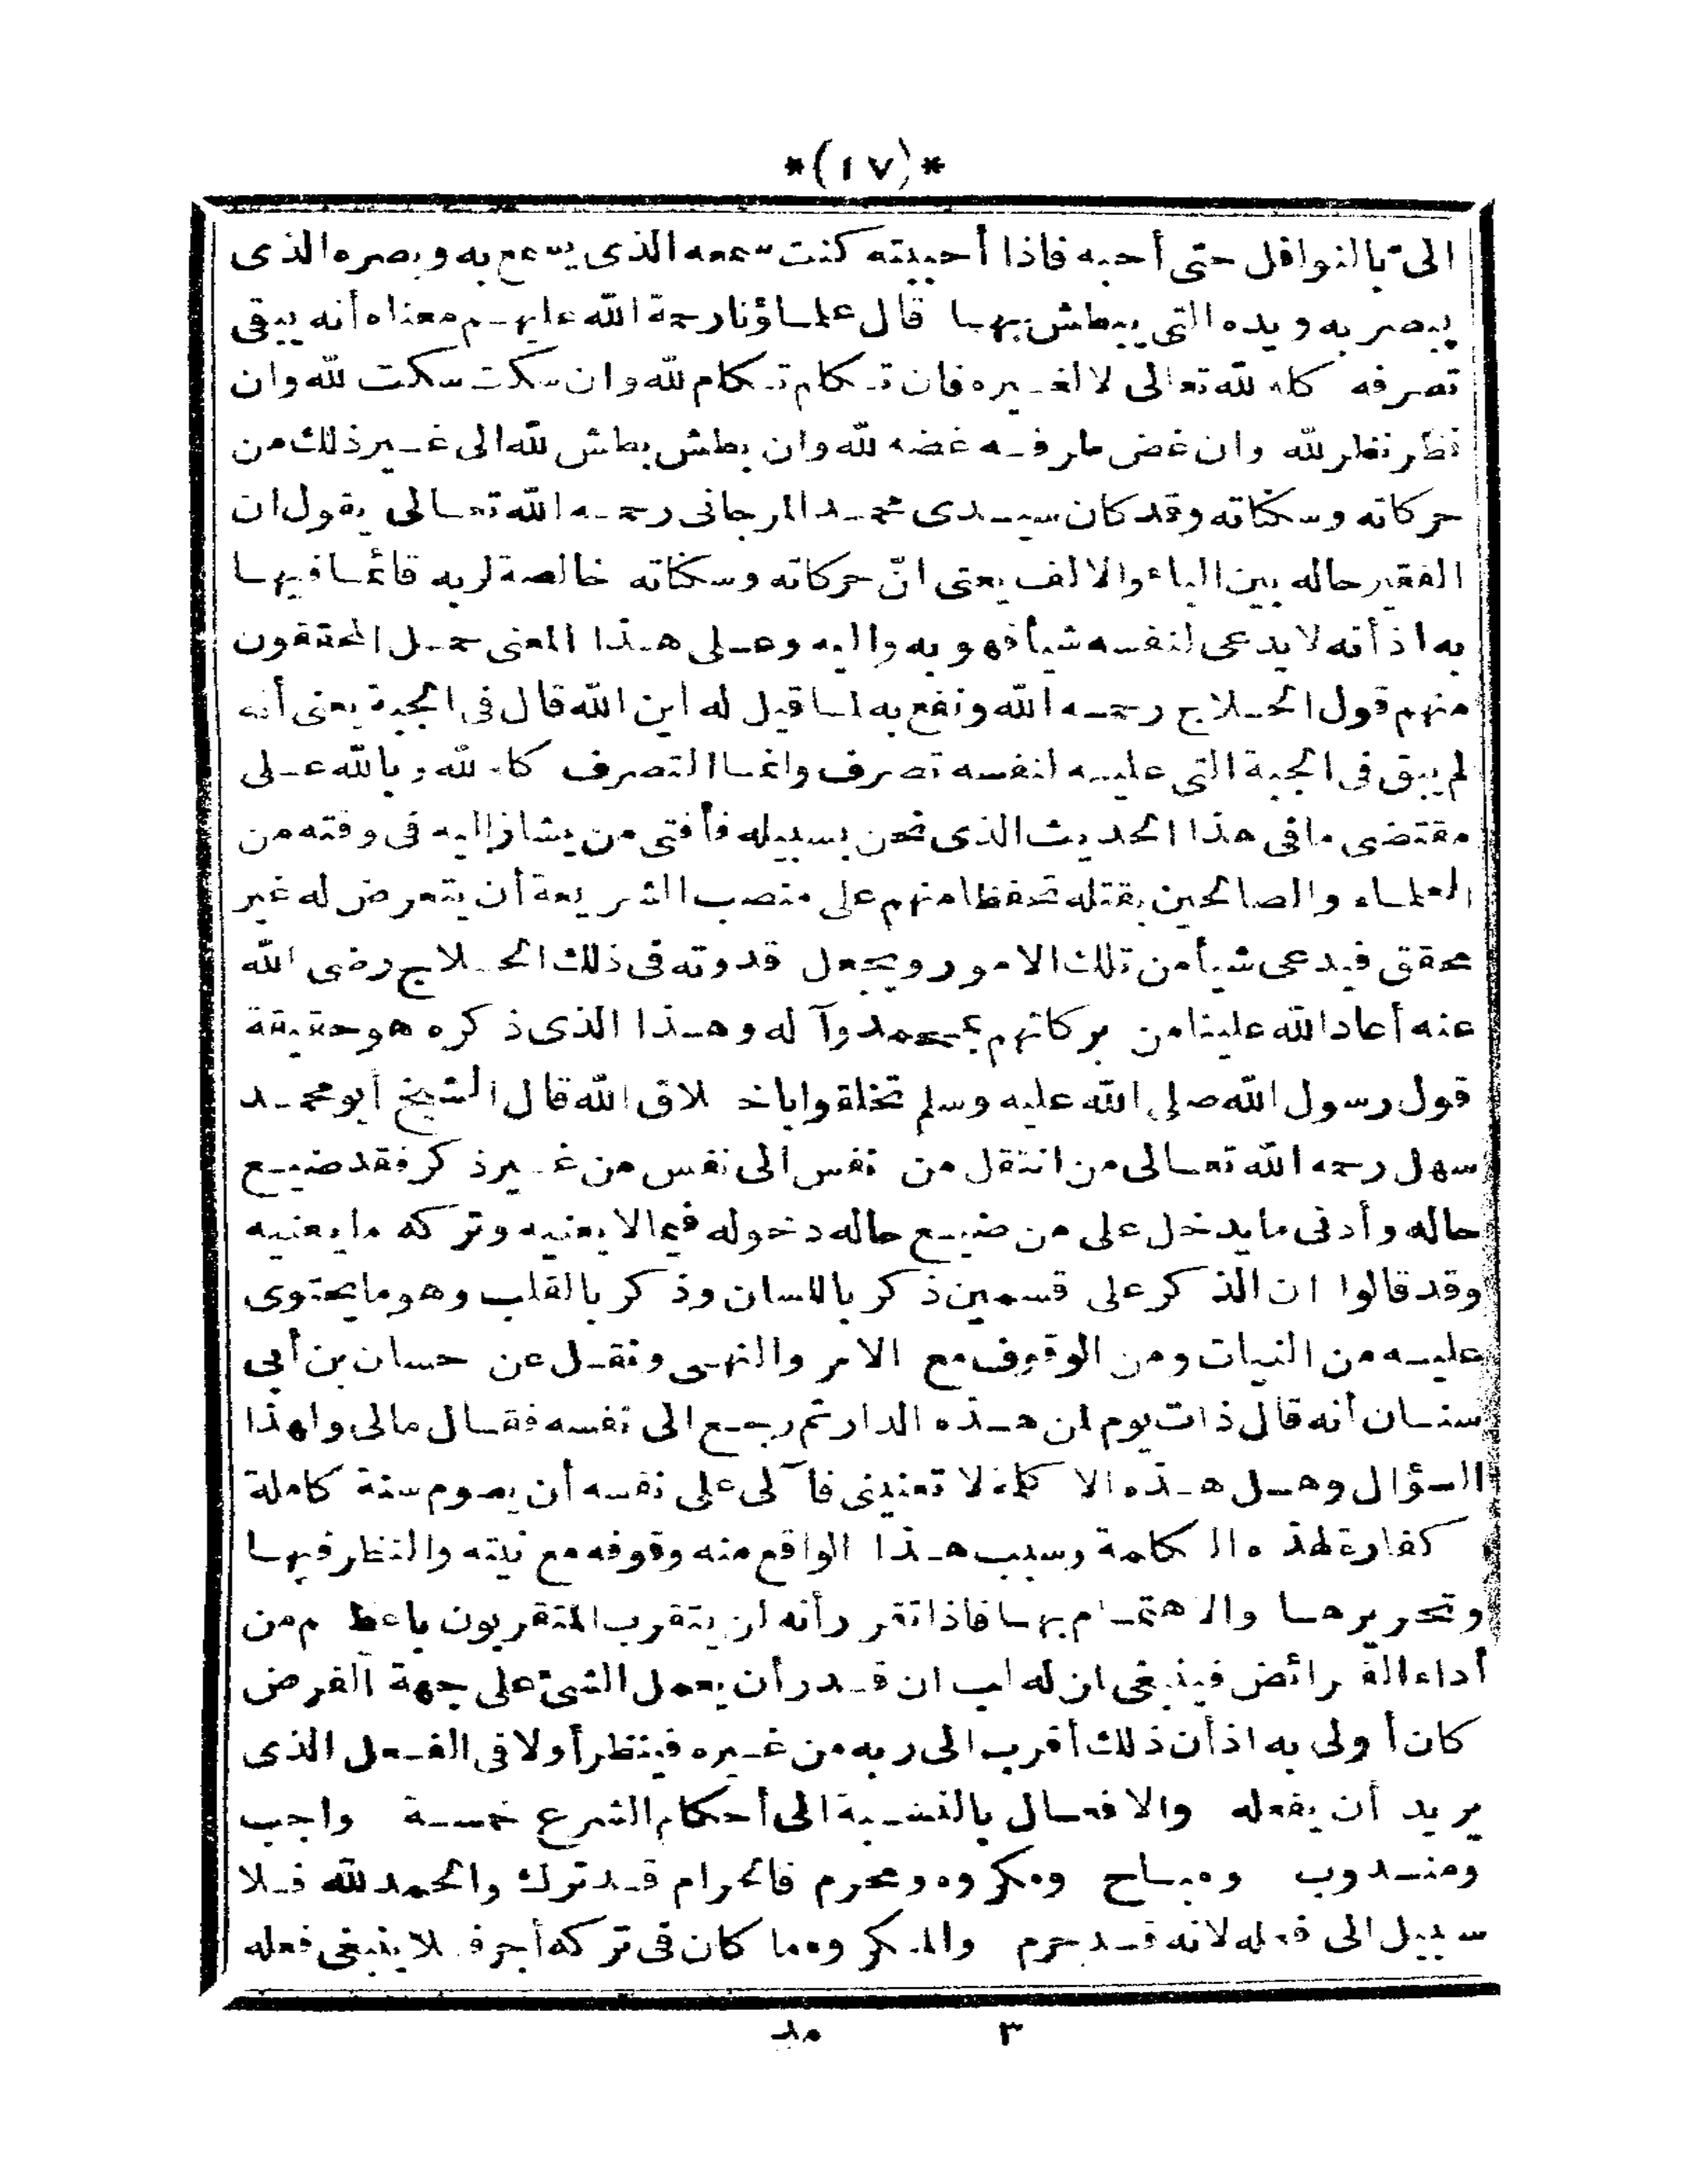 *(١٧)*
الىّ بالنوافل حتى أحبه فاذا أحببته كنت سمعه الذى يسمع به وبصره الذى
يبصر به ويده التى يبطش بها قال علماؤنا رحمة الله عليهم معناه أنه يبقى
تصرفه كله لله تعالى لا لغيره فان تكلم تكلم لله وان سكت سكت لله وان
نظر نظر لله وان غض طرفه غضه لله وان بطش بطش لله الى غير ذلك من
حركاته وسكناته وقد كان سيدى محمد المرجانى رحمه الله تعالى يقول ان
الفقير حاله بين الباء والالف يعنى انّ حركاته وسكناته خالصة لربه قائما فيها
به اذ أنه لا يدعى لنفسه شيأ فهو به واليه وعلى هذا المعنى حمل المحققون
منهم قول الحلاج رحمه الله ونفع به لما قيل له اين الله قال فى الجبة يعنى أنه
لم يبق فى الجبة التى عليه لنفسه تصرف وانما التصرف كله لله وبالله على
مقتضى مافى هذا الحديث الذى نحن بسبيله فأفتى من يشار اليه فى وقته من
العلماء والصالحين بقتله تحفظا منهم على منصب الشريعة أن يتعرض له غير
محقق فيدعى شيأ من تلك الامور ويجعل قدوته فى ذلك الحلاج رضى الله
عنه أعاد الله علينا من بركاتهم بمحمد وآله وهذا الذى ذكره هو حقيقة
قول رسول الله صلى الله عليه وسلم تخلقوا باخلاق الله قال الشيخ أبو محمد
سهل رحمه الله تعالى من انتقل من نفس الى نفس من غير ذكر فقد ضيع
حاله وأدنى ما يدخل على من ضيع حاله دخوله فيما لا يعنيه وتركه ما يعنيه
وقد قالوا ان الذكر على قسمين ذكر باللسان وذكر بالقلب وهو ما يحتوى
عليه من النيات ومن الوقوف مع الامر والنهى ونقل عن حسان بن أبى
سنان أنه قال ذات يوم لمن هذه الدار ثم رجع الى نفسه فقال مالى ولهذا
السؤال وهل هذه الا كلمة لا تعنينى فآلى على نفسه أن يصوم سنة كاملة
كفارة لهذه الكلمة وسبب هذا الواقع منه وقوفه مع نيته والنظر فيها
وتحريرها والاهتمام بها فاذا تقرر أنه لن يتقرب المتقربون باعظم من
أداء الفرائض فينبغى ان له لب ان قدر أن يعمل الشئ على جهة الفرض
كان أولى به اذ أن ذلك أقرب الى ربه من غيره فينظر أولا فى الفعل الذى
يريد أن يفعله والافعال بالنسبة الى أحكام الشرع خمسة واجب
ومندوب ومباح ومكروه ومحرم فالحرام قد ترك والحمد لله فلا
سبيل الى فعله لانه قد حرم والمكروه ما كان فى تركه أجر فلا ينبغى فعله
٣ مد